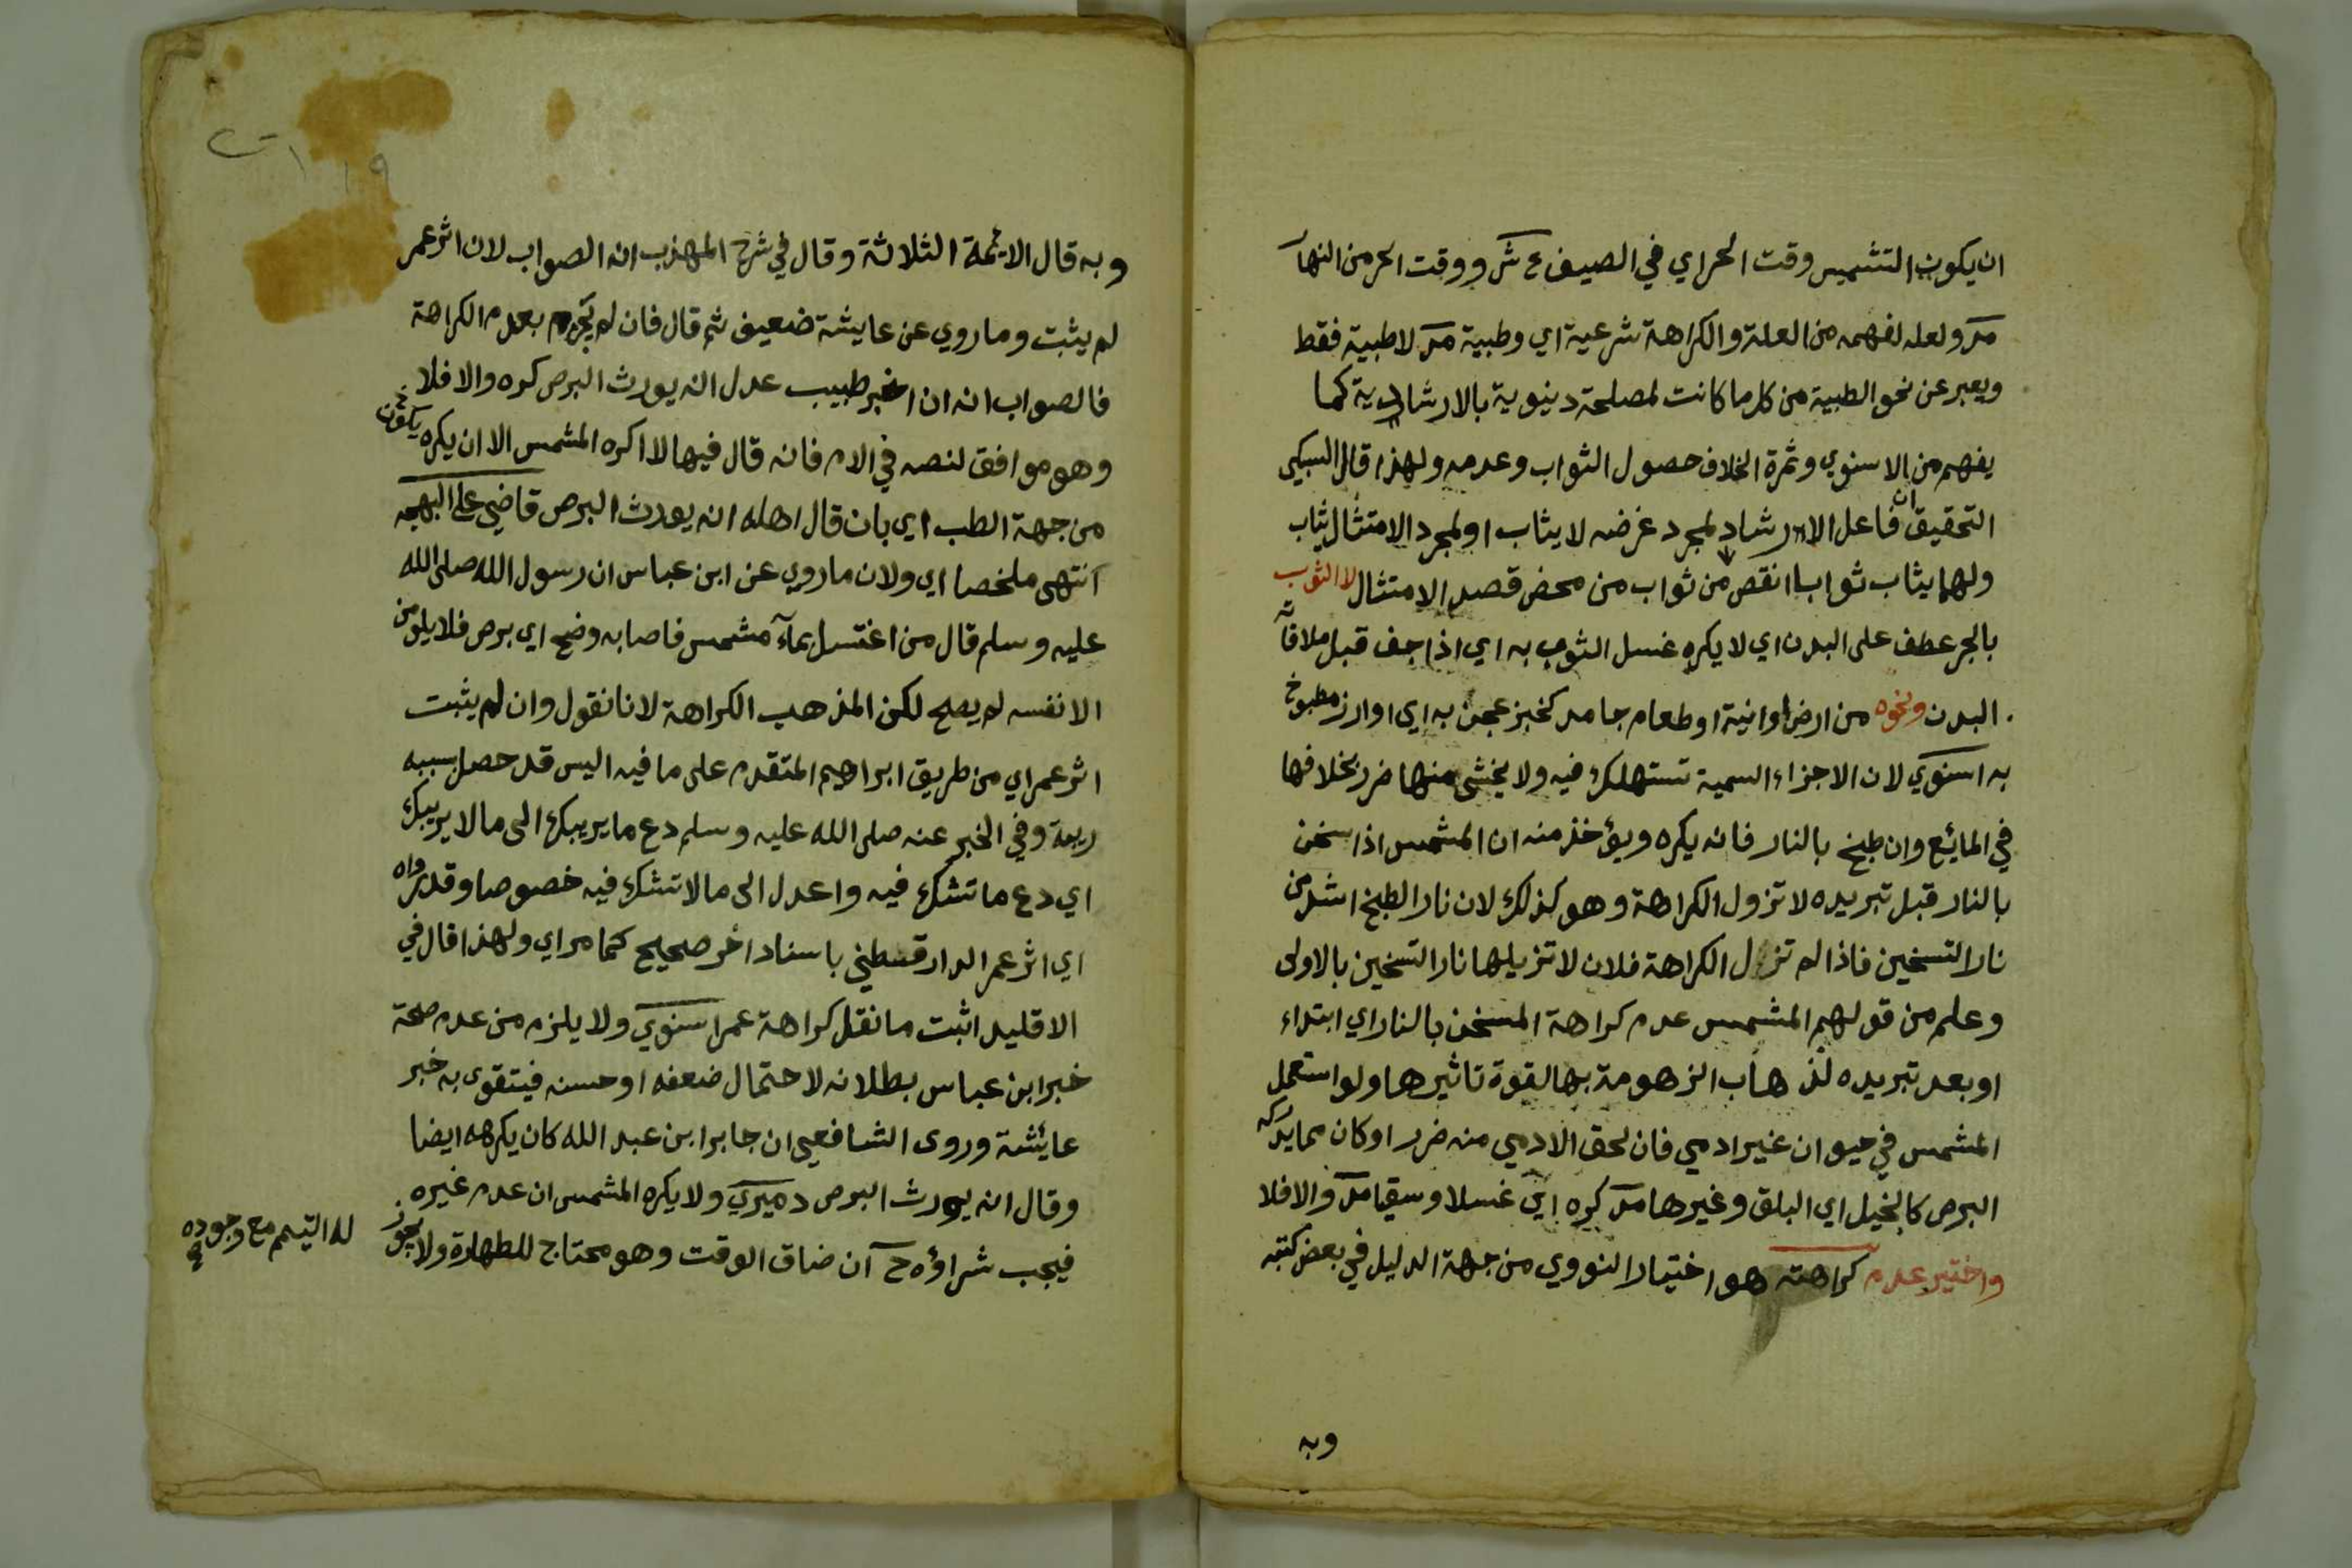 ان يكون التشميس وقت الحر اي في الصيف ع ش ووقت الحر من النهار
مر ولعله لفهمه من العلة والكراهة شرعية اي وطبية مر لا طبية فقط
ويعبر عن نحو الطبية من كل ما كانت لمصلحة دنيوية بالارشادية كما
يفهم من الاسنوي وثمرة الخلاف حصول الثواب وعدمه ولهذا قال السبكي
التحقيق ان فاعل الارشاد لمجرد غرضه لا يثاب او لمجرد الامتثال يثاب
ولهما يثاب ثوابا انقص من ثواب من محض قصد الامتثال لا الثوب
بالجر عطف على البدن اي لا يكره غسل الثوب به اي اذا جف قبل ملاقاة
البدن ونحوه من ارض او انية او طعام جامد كخبز عجن به اي او ارز مطبوخ
به اسنوي لان الاجزاء السمية تستهلك فيه ولا يخشى منها ضرر بخلافها
في المائع وان طبخ بالنار فانه يكره ويؤخذ منه ان المشمس اذا سخن
بالنار قبل تبريده لا تزول الكراهة وهو كذلك لان نار الطبخ اشد من
نار التسخين فاذا لم تزل الكراهة فلان لا تزيلها نار التسخين بالاولى
وعلم من قولهم المشمس عدم كراهة المسخن بالنار اي ابتداء
او بعد تبريده لذهاب الزهومة بها لقوة تاثيرها ولو استعمل
المشمس في حيوان غير ادمي فان لحق الادمي منه ضرر او كان مما يدركه
البرص كالخيل اي البلق وغيرها مر كره اي غسلا وسقيا مر والا فلا
واختير عدم كراهته هو اختيار النووي من جهة الدليل في بعض كتبه
وبه
وبه قال الايمة الثلاثة وقال في شرح المهذب انه الصواب لان اثر عمر
لم يثبت وما روي عن عايشة ضعيف ثم قال فان لم يجزم بعدم الكراهة
فالصواب انه ان اخبر طبيب عدل انه يورث البرص كره والا فلا
وهو موافق لنصه في الام فانه قال فيها لا اكره المشمس الا ان يكره يكون
من جهة الطب اي بان قال اهله انه يورث البرص قاضي على البهجه
انتهى ملخصا اي ولان ما روي عن ابن عباس ان رسول الله صلى الله
عليه وسلم قال من اغتسل بماء مشمس فاصابه وضح اي برص فلا يلومن
الا نفسه لم يصح لكن المذهب الكراهة لانا نقول وان لم يثبت
اثر عمر اي من طريق ابراهيم المتقدم على ما فيه اليس قد حصل سببه
ريبة وفي الخبر عنه صلى الله عليه وسلم دع ما يريبك الى ما لا يريبك
اي دع ما تشك فيه واعدل الى ما لا تشك فيه خصوصا وقد رواه
اي اثر عمر الدارقسطني باسناد اخر صحيح كما مر اي ولهذا قال في
الاقليد اثبت ما نقل كراهة عمر اسنوي ولا يلزم من عدم صحة
خبر ابن عباس بطلانه لاحتمال ضعفه او حسنه فيتقوى به خبر
عائشة وروى الشافعي ان جابرا ابن عبد الله كان يكرهه ايضا
وقال انه يورث البرص دميري ولا يكره المشمس ان عدم غيره
فيجب شراؤه ح ان ضاق الوقت وهو محتاج للطهارة ولا يجوز
له التيمم مع وجوده